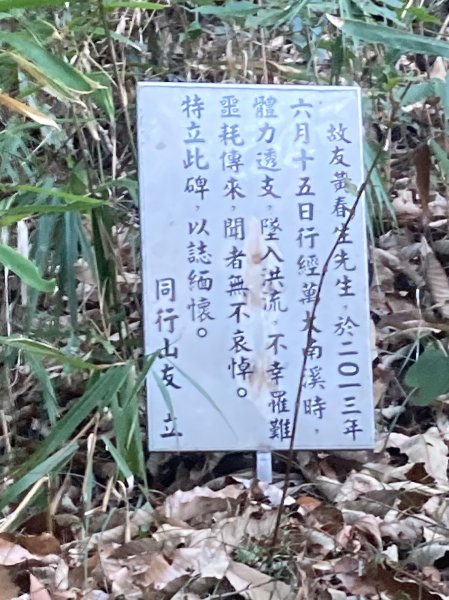 故友黃春生先生，於二〇一三年
六月十五日行經萬木南溪時，
體力透支，墜入洪流，不幸罹難
噩耗傳來，聞者無不哀悼。
特立此碑，以誌緬懷。
同行山友　立